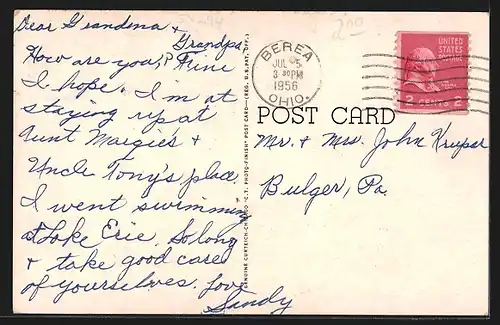 Dear Grandma +
Grandpa,
How are you? Fine
I hope. I'm at
staying up at
Aunt Margie's +
Uncle Tony's place.
I went swimming
at Lake Erie. So long
+ take good care
of yourselves. Love
Sandy
GENUINE CURTEICH-CHICAGO "C.T. PHOTO-FINISH" POST CARD—(REG. U.S. PAT. OFF.)
2.00
BEREA
JUL 5
3 30 PM
1956
OHIO.
UNITED
STATES
POSTAGE
2 CENTS 2
POST CARD
Mr. & Mrs. John Krupa
Bulger, Pa.